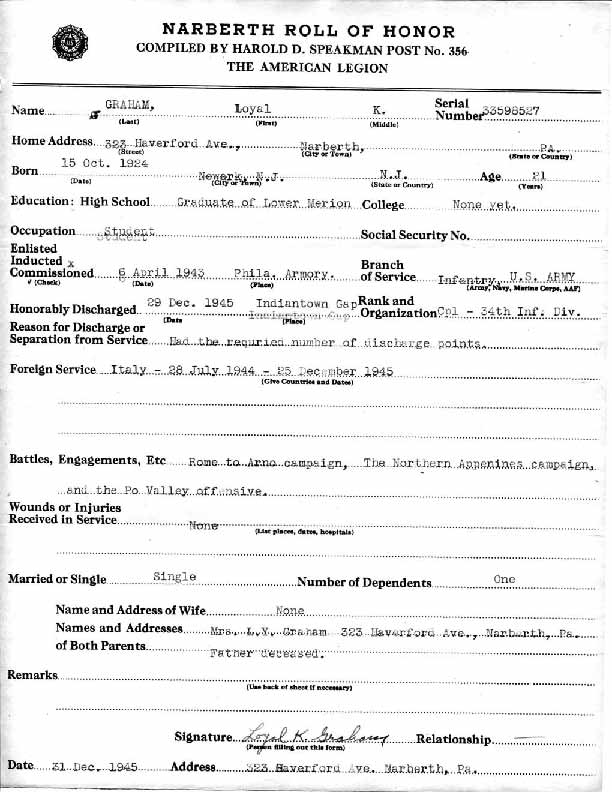 NARBERTH ROLL OF HONOR
COMPILED BY HAROLD D. SPEAKMAN POST No. 356
THE AMERICAN LEGION
Name GRAHAM, Loyal K. Serial Number 33598527
(Last) (First) (Middle)
Home Address 323 Haverford Ave., Narberth, PA.
(Street) (City or Town) (State or Country)
Born 15 Oct. 1924 Newark, N.J. N.J. Age 21
(Date) (City or Town) (State or Country) (Years)
Education: High School Graduate of Lower Merion College None yet.
Occupation Student Social Security No.
Enlisted
Inducted x
Commissioned 6 April 1943 Phila. Armory. Branch of Service Infantry, U.S. ARMY
# (Check) (Date) (Place) (Army, Navy, Marine Corps, AAF)
Honorably Discharged 29 Dec. 1945 Indiantown Gap Rank and Organization Cpl - 34th Inf. Div.
(Date (Place)
Reason for Discharge or
Separation from Service Had the requried number of discharge points.
Foreign Service Italy - 28 July 1944 - 25 December 1945
(Give Countries and Dates)
Battles, Engagements, Etc Rome to Arno campaign, The Northern Appenines campaign,
and the Po Valley offensive.
Wounds or Injuries
Received in Service None
(List places, dates, hospitals)
Married or Single Single Number of Dependents One
Name and Address of Wife None
Names and Addresses Mrs. L.Y. Graham 323 Haverford Ave., Narberth, Pa.
of Both Parents Father deceased.
Remarks
(Use back of sheet if necessary)
Signature Loyal K. Graham Relationship —
(Person filling out this form)
Date 31 Dec. 1945 Address 323 Haverford Ave. Narberth, Pa.